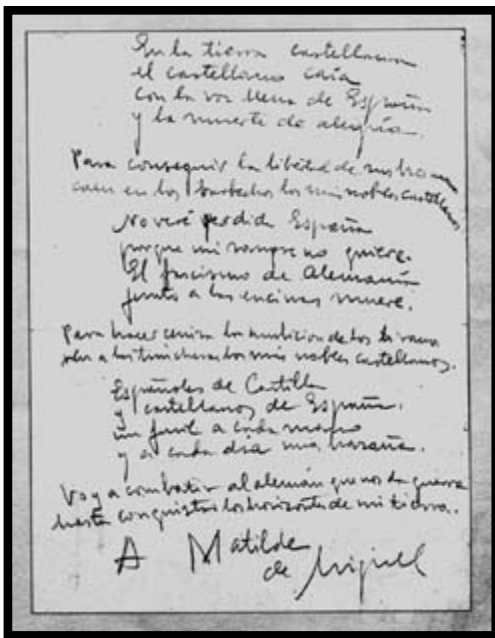 En la tierra castellana
el castellano caía
con la voz llena de España
y la muerte de alegría.
Para conseguir la libertad de sus
caen en los barbechos los más nobles castellanos
No veré perdida España
porque mi sangre no quiere.
El fascismo de Alemania
junto a las encinas muere.
Para hacer ceniza la ambición de los tiranos
van a las trincheras los más nobles castellanos.
Españoles de Castilla
y castellanos de España,
un fusil a cada mano
y a cada día una hazaña.
Voy a combatir al alemán que nos da guerra
hasta conquistar los horizontes de mi tierra.
A Matilde
de Miguel